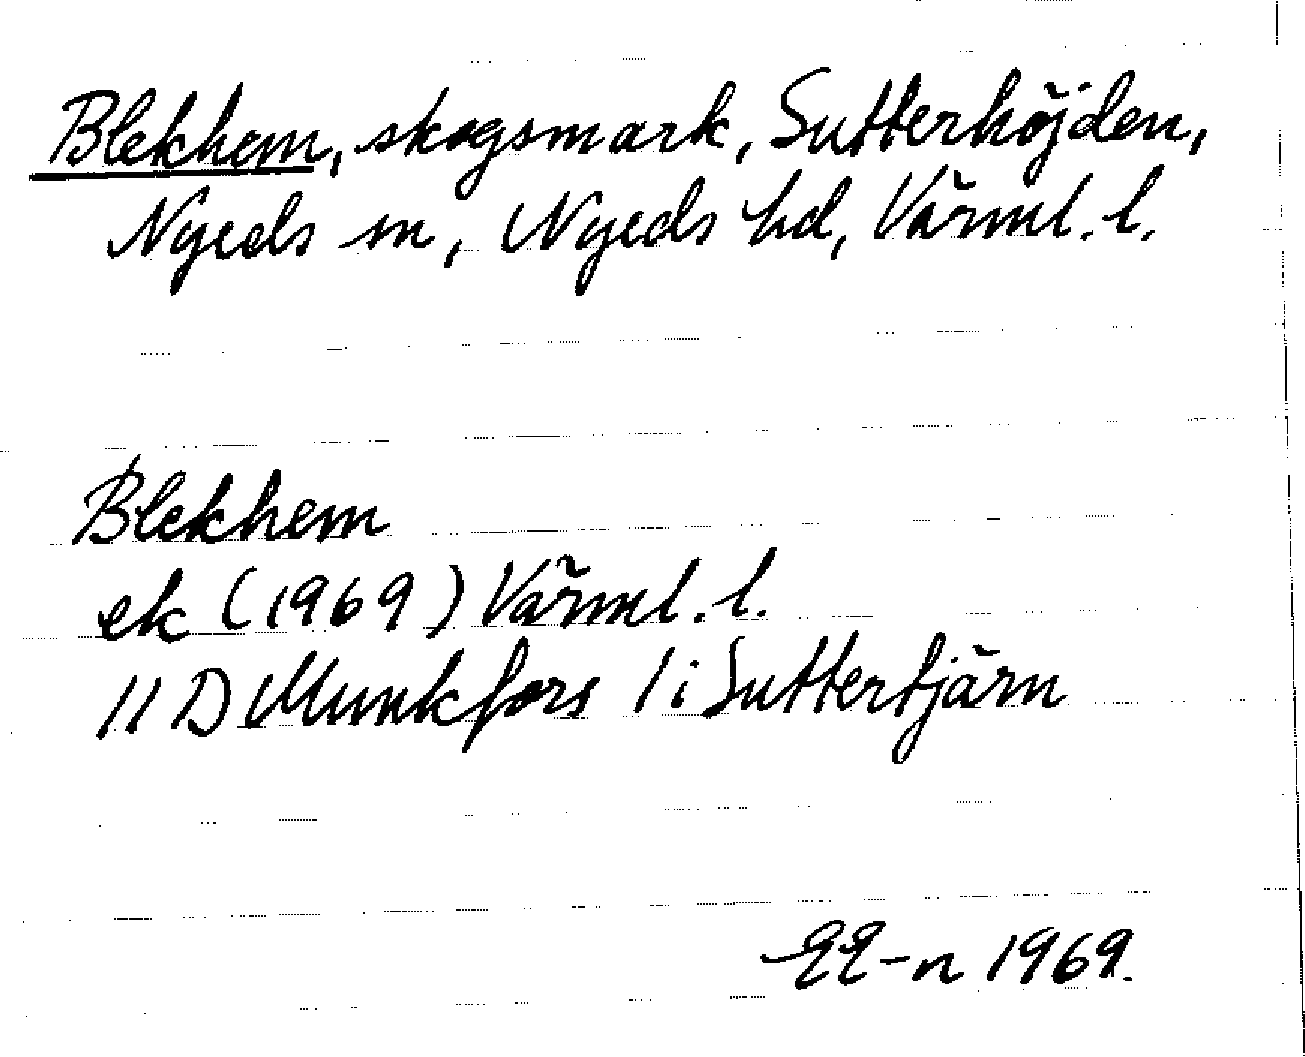 Blekhem, skogsmark, Sutterhöjden,
Nyeds sn, Nyeds hd, Värml. l.
Blekhem
ek (1969) Värml. l.
11 D Munkfors 1 i Suttertjärn
EE-n 1969.